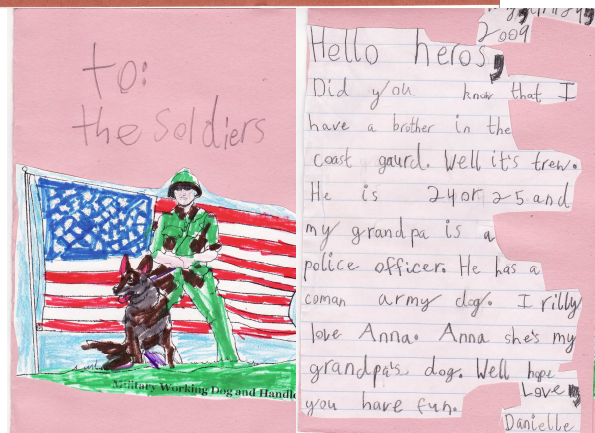 to:
the Soldiers
Military Working Dog and Handle
2009
Hello heros,
Did you know that I
have a brother in the
coast gaurd. Well it's trew.
He is 24 or 25 and
my grandpa is a
police officer. He has a
coman army dog. I rilly
love Anna. Anna she's my
grandpa's dog. Well hope
you have fun.
Love,
Danielle